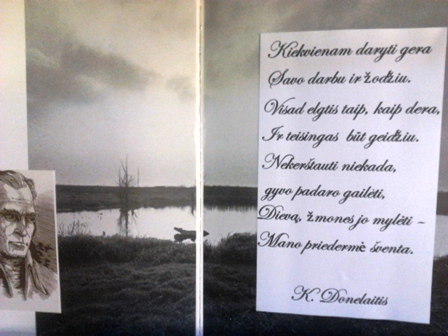 Kiekvienam daryti gera
Savo darbu ir žodžiu.
Visad elgtis taip, kaip dera,
Ir teisingas būt geidžiu.
Nekerštauti niekada,
gyvo padaro gailėti,
Dievą, žmones jo mylėti –
Mano priedermė šventa.
K. Donelaitis